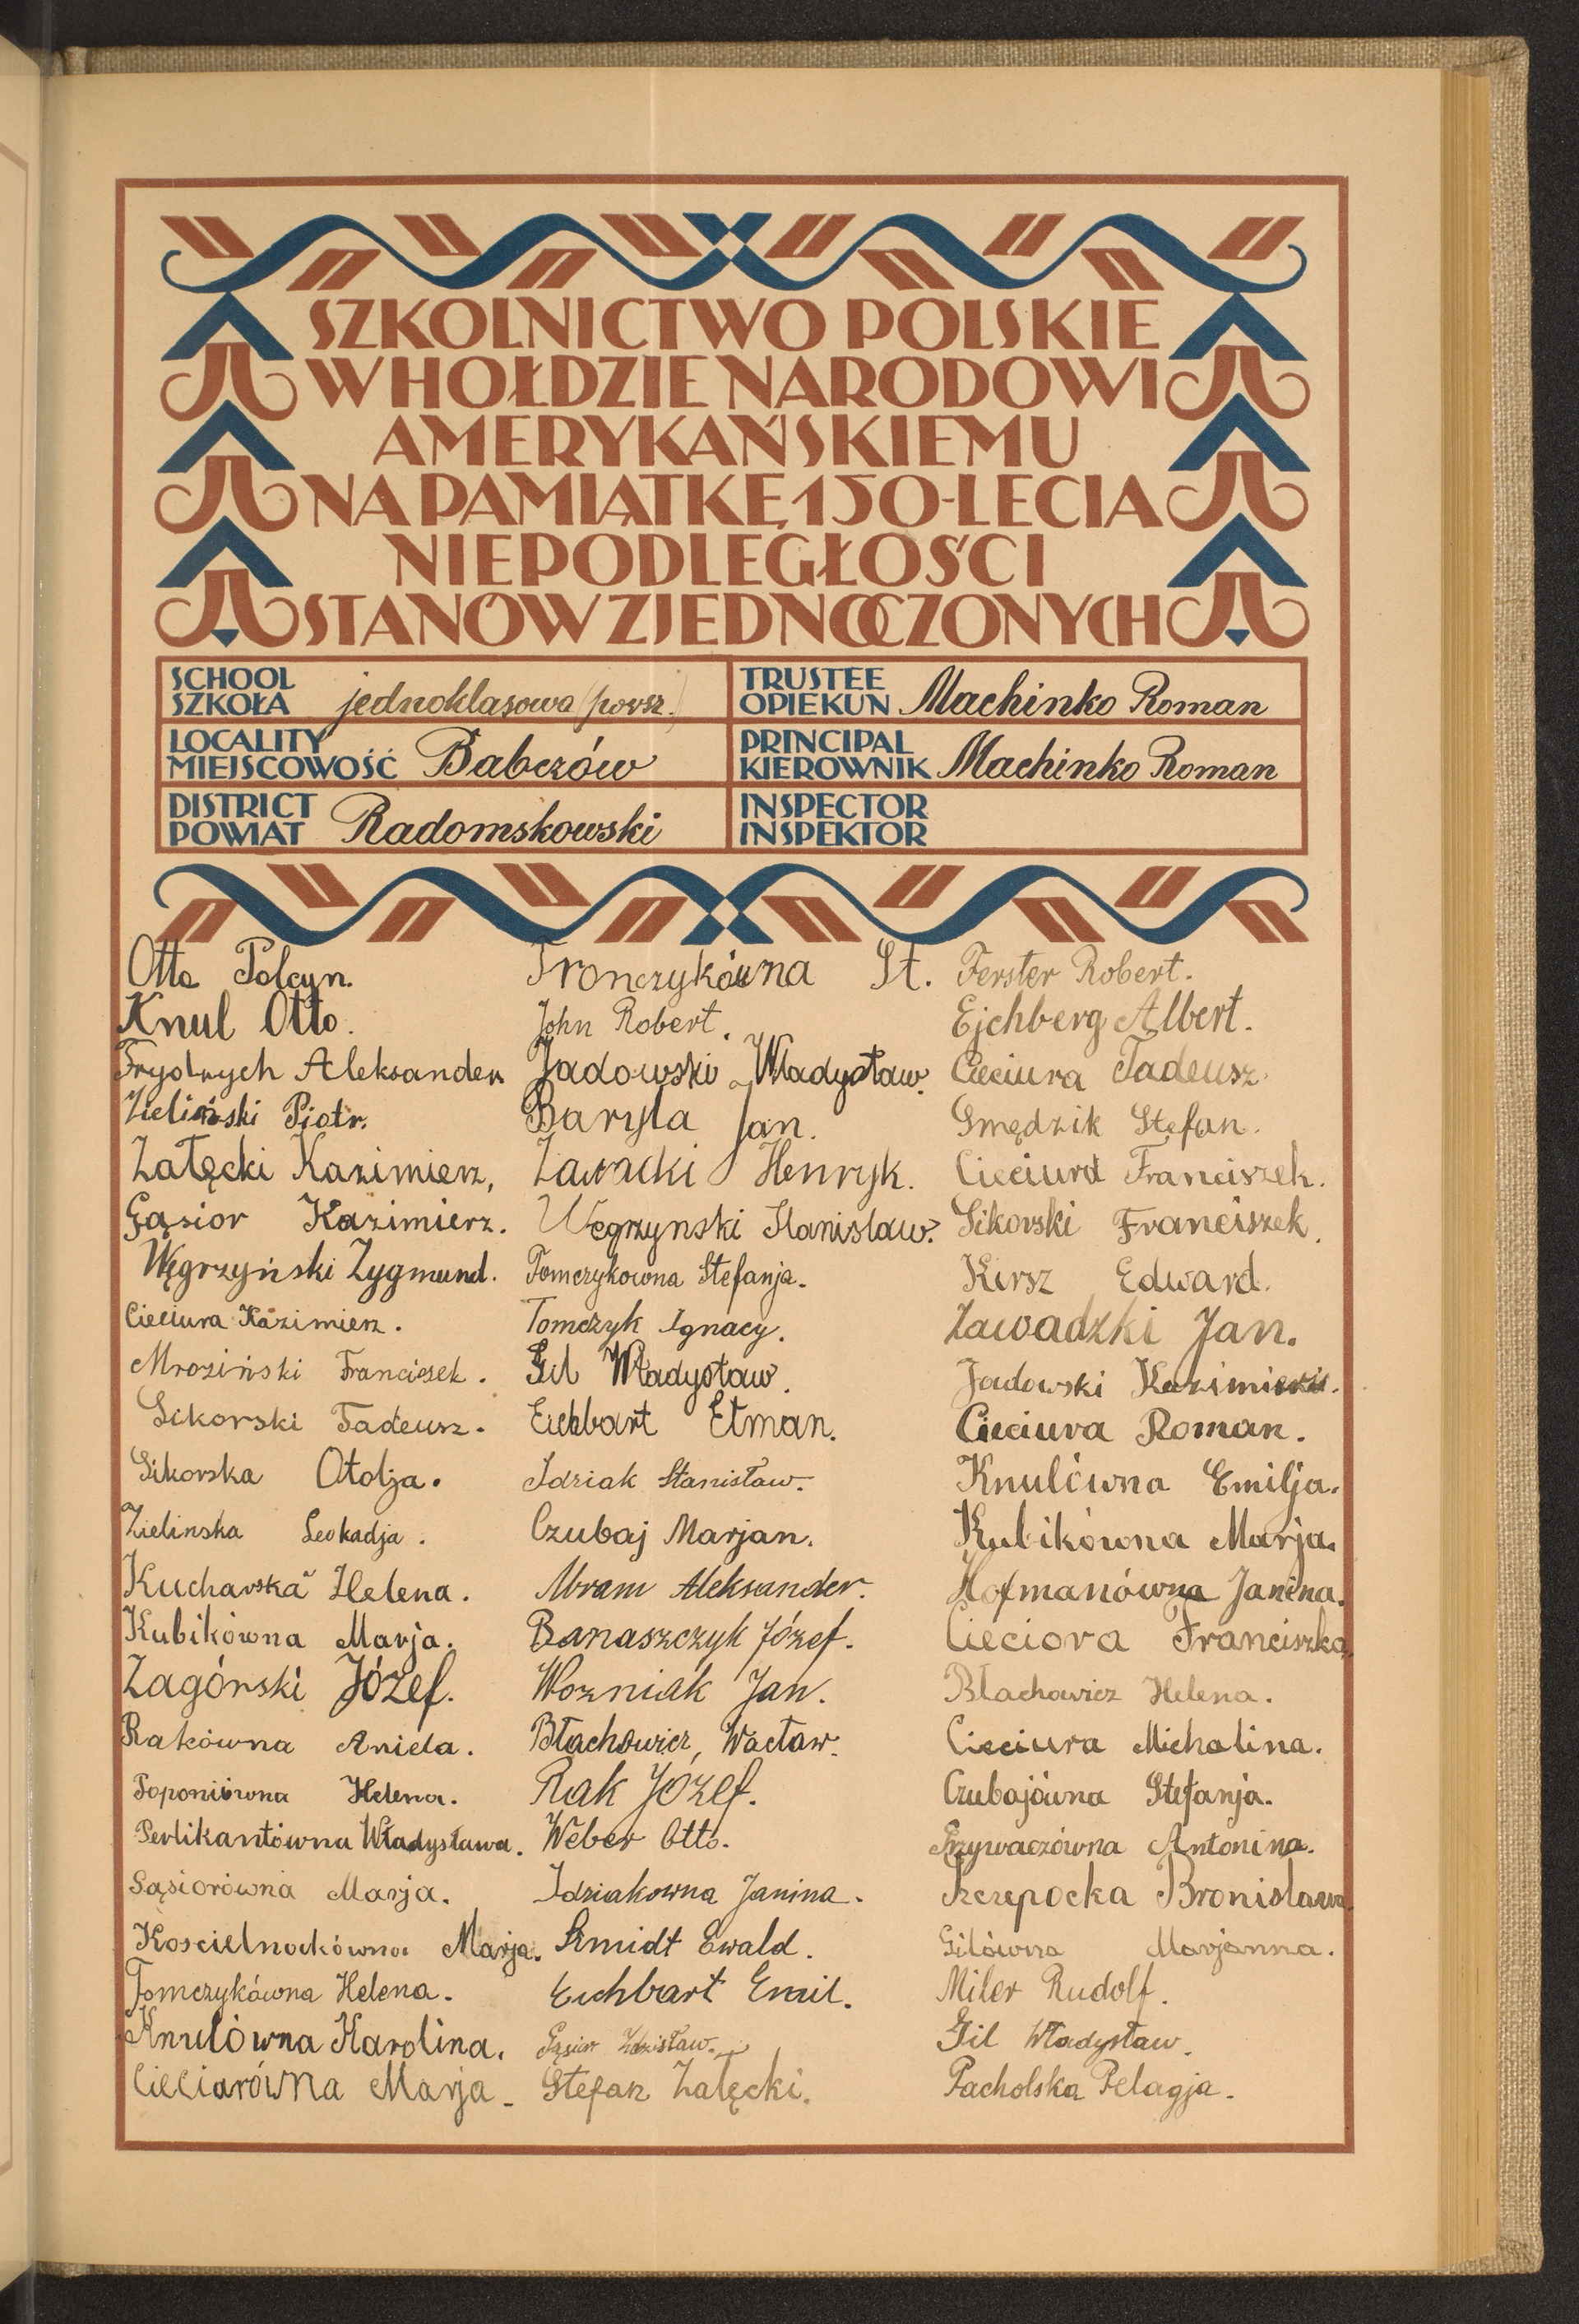 SZKOLNICTWO POLSKIE
W HOŁDZIE NARODOWI
AMERYKAŃSKIEMU
NA PAMIĄTKĘ 150-LECIA
NIEPODLEGŁOŚCI
STANÓW ZJEDNOCZONYCH
SCHOOL
SZKOŁA jednoklasowa (powsz.)
TRUSTEE
OPIEKUN Machinko Roman
LOCALITY
MIEJSCOWOŚĆ Babczów
PRINCIPAL
KIEROWNIK Machinko Roman
DISTRICT
POWIAT Radomskowski
INSPECTOR
INSPEKTOR
Otto Polcyn.
Knul Otto.
Frydrych Aleksander
Zieliński Piotr.
Załęcki Kazimierz,
Gąsior Kazimierz.
Węgrzyński Zygmund.
Cieciura Kazimierz.
Mroziński Franciszek.
Sikorski Tadeusz.
Sikorska Otolja.
Zielinska Leokadja.
Kucharska Helena.
Kubikówna Marja.
Zagórski Józef.
Rakówna Aniela.
Poponiówna Helena.
Perlikantówna Władysława.
Gąsiorówna Marja.
Koscielnockówna Marja.
Tomczykówna Helena.
Knulówna Karolina.
Cieciarówna Marja.
Fronczykówna St.
John Robert.
Jadowski Władysław.
Baryla Jan.
Zawacki Henryk.
Węgrzynski Stanislaw.
Tomczykowna Stefanja.
Tomczyk Ignacy.
Gil Władysław.
Eichbart Etman.
Idziak Stanisław.
Czubaj Marjan.
Abram Aleksander.
Banaszczyk Józef.
Wozniak Jan.
Błachowicz, Wacław.
Rak Józef.
Weber Otto.
Idziakowna Janina.
Szmidt Ewald.
Eichbart Emil.
Gąsior Zdzisław.
Stefan Załęcki.
Ferster Robert.
Ejchberg Albert.
Cieciura Tadeusz.
Smędzik Stefan.
Cieciura Franciszek.
Sikorski Franciszek.
Kirsz Edward.
Zawadzki Jan.
Jadowski Kazimierz.
Cieciura Roman.
Knulówna Emilja.
Kubikówna Marja.
Hofmanówna Janina.
Cieciora Franciszka.
Błachowicz Helena.
Cieciura Michalina.
Czubajówna Stefanja.
Przywaczówna Antonina.
Szczepocka Bronisława
Gilówna Marjanna.
Miler Rudolf.
Gil Władysław.
Pacholska Pelagja.